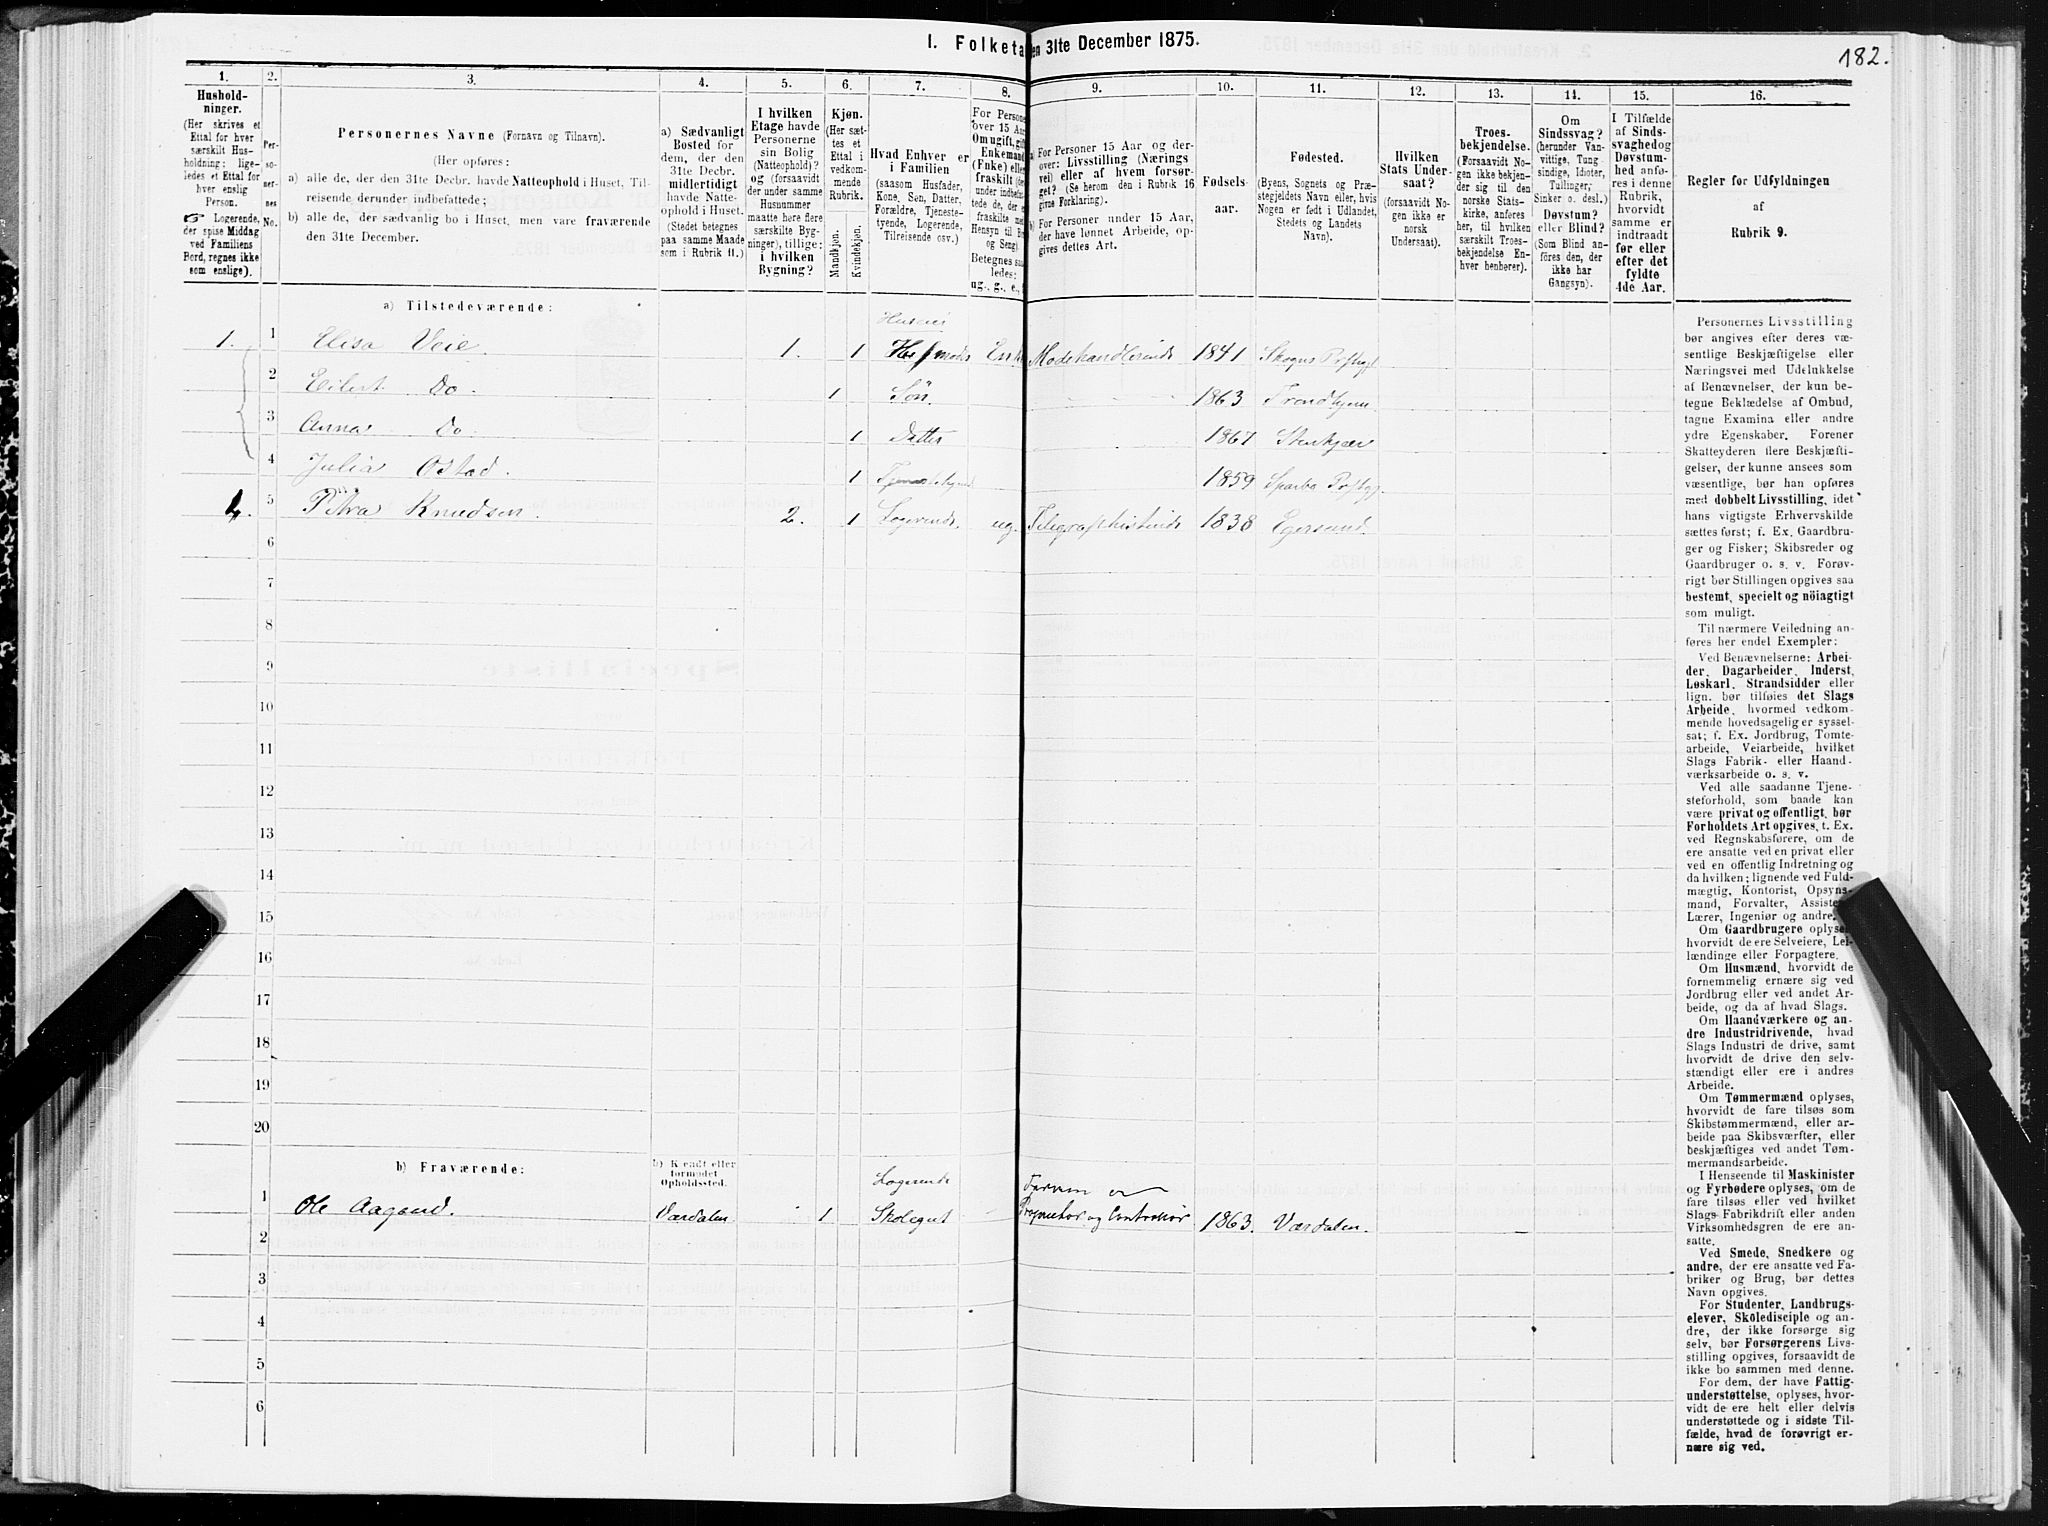 I. Folketa en 31te December 1875.
182.
1.
Hushold-
ninger.
(Her skrives et
Ettal for hver
særskilt Hus-
holdning; lige-
ledes et Ettal for
hver enslig
Person.
☞ Logerende,
der spise Middag
ved Familiens
Bord, regnes ikke
som enslige).
2.
Per-
so-
ner-
nes
No.
3.
Personernes Navne (Fornavn og Tilnavn).
(Her opføres:
a) alle de, der den 31te Decbr. havde Natteophold i Huset, Til-
reisende derunder indbefattede;
b) alle de, der sædvanlig bo i Huset, men vare fraværende
den 31te December.
4.
a) Sædvanligt
Bosted for
dem, der den
31te Decbr.
midlertidigt
havde Natte-
ophold i Huset.
(Stedet betegnes
paa samme Maade
som i Rubrik 11.)
5.
I hvilken
Etage havde
Personerne
sin Bolig
(Natteophold)?
og (forsaavidt
der under samme
Husnummer
maatte høre flere
særskilte Byg-
ninger), tillige:
i hvilken
Bygning?
6.
Kjøn.
(Her sæt-
tes et
Ettal i
vedkom-
mende
Rubrik.
Mandkjøn.
Kvindekjøn.
7.
Hvad Enhver er
i Familien
(saasom Husfader,
Kone, Søn, Datter,
Forældre, Tjeneste-
tyende, Logerende,
Tilreisende osv.)
8.
For Persone
over 15 Aar
Om ugift, gift
Enkemand
(Fnke) elle
fraskilt (de
under indbefat-
tede, de, de
fraskilte me
Hensyn til B
og Seng).
Betegnes saa
ledes:
ug., g., e.,
9.
a) For Personer 15 Aar og der-
over: Livsstilling (Nærings
vei) eller af hvem forsør-
get? (Se herom den i Rubrik 16
givne Forklaring).
b) For Personer under 15 Aar,
der have lønnet Arbeide, op-
gives dettes Art.
10.
Fødsels-
aar.
11.
Fødested.
(Byens, Sognets og Præ-
stegjeldets Navn eller, hvis
Nogen er født i Udlandet,
Stedets og Landets
Navn).
12.
Hvilken
Stats Under-
saat?
(forsaavidt No-
gen ikke er
norsk
Undersaat).
13.
Troes-
bekjendelse.
(Forsaavidt No-
gen ikke bekjen-
der sig til den
norske Stats-
kirke, anføres
her, til hvilken
særskilt Troes-
bekjendelse En-
hver henhører).
14.
Om
Sindssvag?
(herunder Van-
vittige, Tung-
sindige, Idioter,
Tullinger,
Sinker o. desl.)
Døvstum?
eller Blind?
(Som Blind an-
føres den, der
ikke har
Gangsyn).
15.
I Tilfælde
af Sinds-
svaghedog
Døvstum-
hed anfø-
res i denne
Rubrik,
hvorvidt
samme er
indtraadt
før eller
efter det
fyldte
4de Aar.
16.
Regler for Udfyldningen
af
Rubrik 9.
a) Tilstedeværende:
Huseier
1. 1 Elisa Veie. 1. 1 Husmoder Enke Modehandlerinde 1841 Skogns Præstgj.
2 Eilert Do. 1 Søn. 1863 Trondhjem
3 Anna Do 1 Datter 1867 Stenkjær
4 Julia Ostad. 1 1859 Sparbo Præstgj.
1. 5 Petra Knudsen. 2. 1 Logerende. ug. Telegrafistinde 1838 Egersund.
6
7
8
9
10
11
12
13
14
15
16
17
18
19
20
b) Fraværende:
b) Kendt eller
formodet
Opholdssted.
Logerende
1 Ole Aagaard. Værdalen 1 Skolegut Proprietær og Controllør 1863. Værdalen.
2
3
4
5
6
Personernes Livsstilling
bør angives efter deres væ-
sentlige Beskjæftigelse eller
Næringsvei med Udelukkelse
af Benævnelser, der kun be-
tegne Beklædelse af Ombud,
tagne Examina eller andre
ydre Egenskaber. Forener
Skatteyderen flere Beskjæfti-
gelser, der kunne ansees som
væsentlige, bør han opføres
med dobbelt Livsstilling, idet
hans vigtigste Erhvervskilde
sættes først; f. Ex. Gaardbru-
ger og Fisker; Skibsreder og
Gaardbruger o. s. v. Forøv-
rigt bør Stillingen opgives saa
bestemt, specielt og nöiagtigt
som muligt.
Til nærmere Veiledning an-
føres her endel Exempler:
Ved Benævnelserne: Arbei-
der, Dagarbeider, Inderst,
Løskarl, Strandsidder eller
lign. bør tilføies det Slags
Arbeide, hvormed vedkom-
mende hovedsagelig er syssel-
sat; f. Ex. Jordbrug, Tomte-
arbeide, Veiarbeide, hvilket
Slags Fabrik- eller Haand-
værksarbeide o. s. v.
Ved alle saadanne Tjene-
steforhold, som baade kan
være privat og offentligt, bør
Forholdets Art opgives, t. Ex.
ved Regnskabsførere, om de
ere ansatte ved en privat eller
ved en offentlig Indretning og
da hvilken; lignende ved Fuld-
mægtig, Kontorist, Opsyns-
mand, Forvalter, Assisten
Lærer, Ingeniør og andre.
Om Gaardbrugere oplyses
hvorvidt de ere Selveiere, Lei-
lændinge eller Forpagtere.
Om Husmænd, hvorvidt de
fornemmelig ernære sig ved
Jordbrug eller ved andet Ar-
beide, og da af hvad Slags.
Om Haandværkere og an-
dre Industridrivende, hvad
Slags Industri de drive, samt
hvorvidt de drive den selv-
stændigt eller ere i andres
Arbeide.
Om Tømmermænd oplyses,
hvorvidt de fare tilsøs som
Skibstømmermænd, eller ar-
beide paa Skibsværfter, eller
beskjæftiges ved andet Tøm-
mermandsarbeide.
I Henseende til Maskinister
og Fyrbødere oplyses, om de
fare tilsøs eller ved hvilket
Slags Fabrikdrift eller anden
Virksomhedsgren de ere an-
satte.
Ved Smede, Snedkere og
andre, der ere ansatte ved Fa-
briker og Brug, bør dettes
Navn opgives.
For Studenter, Landbrugs-
elever, Skoledisciple og an-
dre, der ikke forsørge sig
selv, bør Forsørgerens Livs-
stilling opgives, forsaavidt de
ikke bo sammen med denne.
For dem, der have Fattig-
understøttelse, oplyses, hvor-
vidt de ere helt eller delvis
understøttede og i sidste Til-
fælde, hvad de forøvrigt er-
nære sig ved.